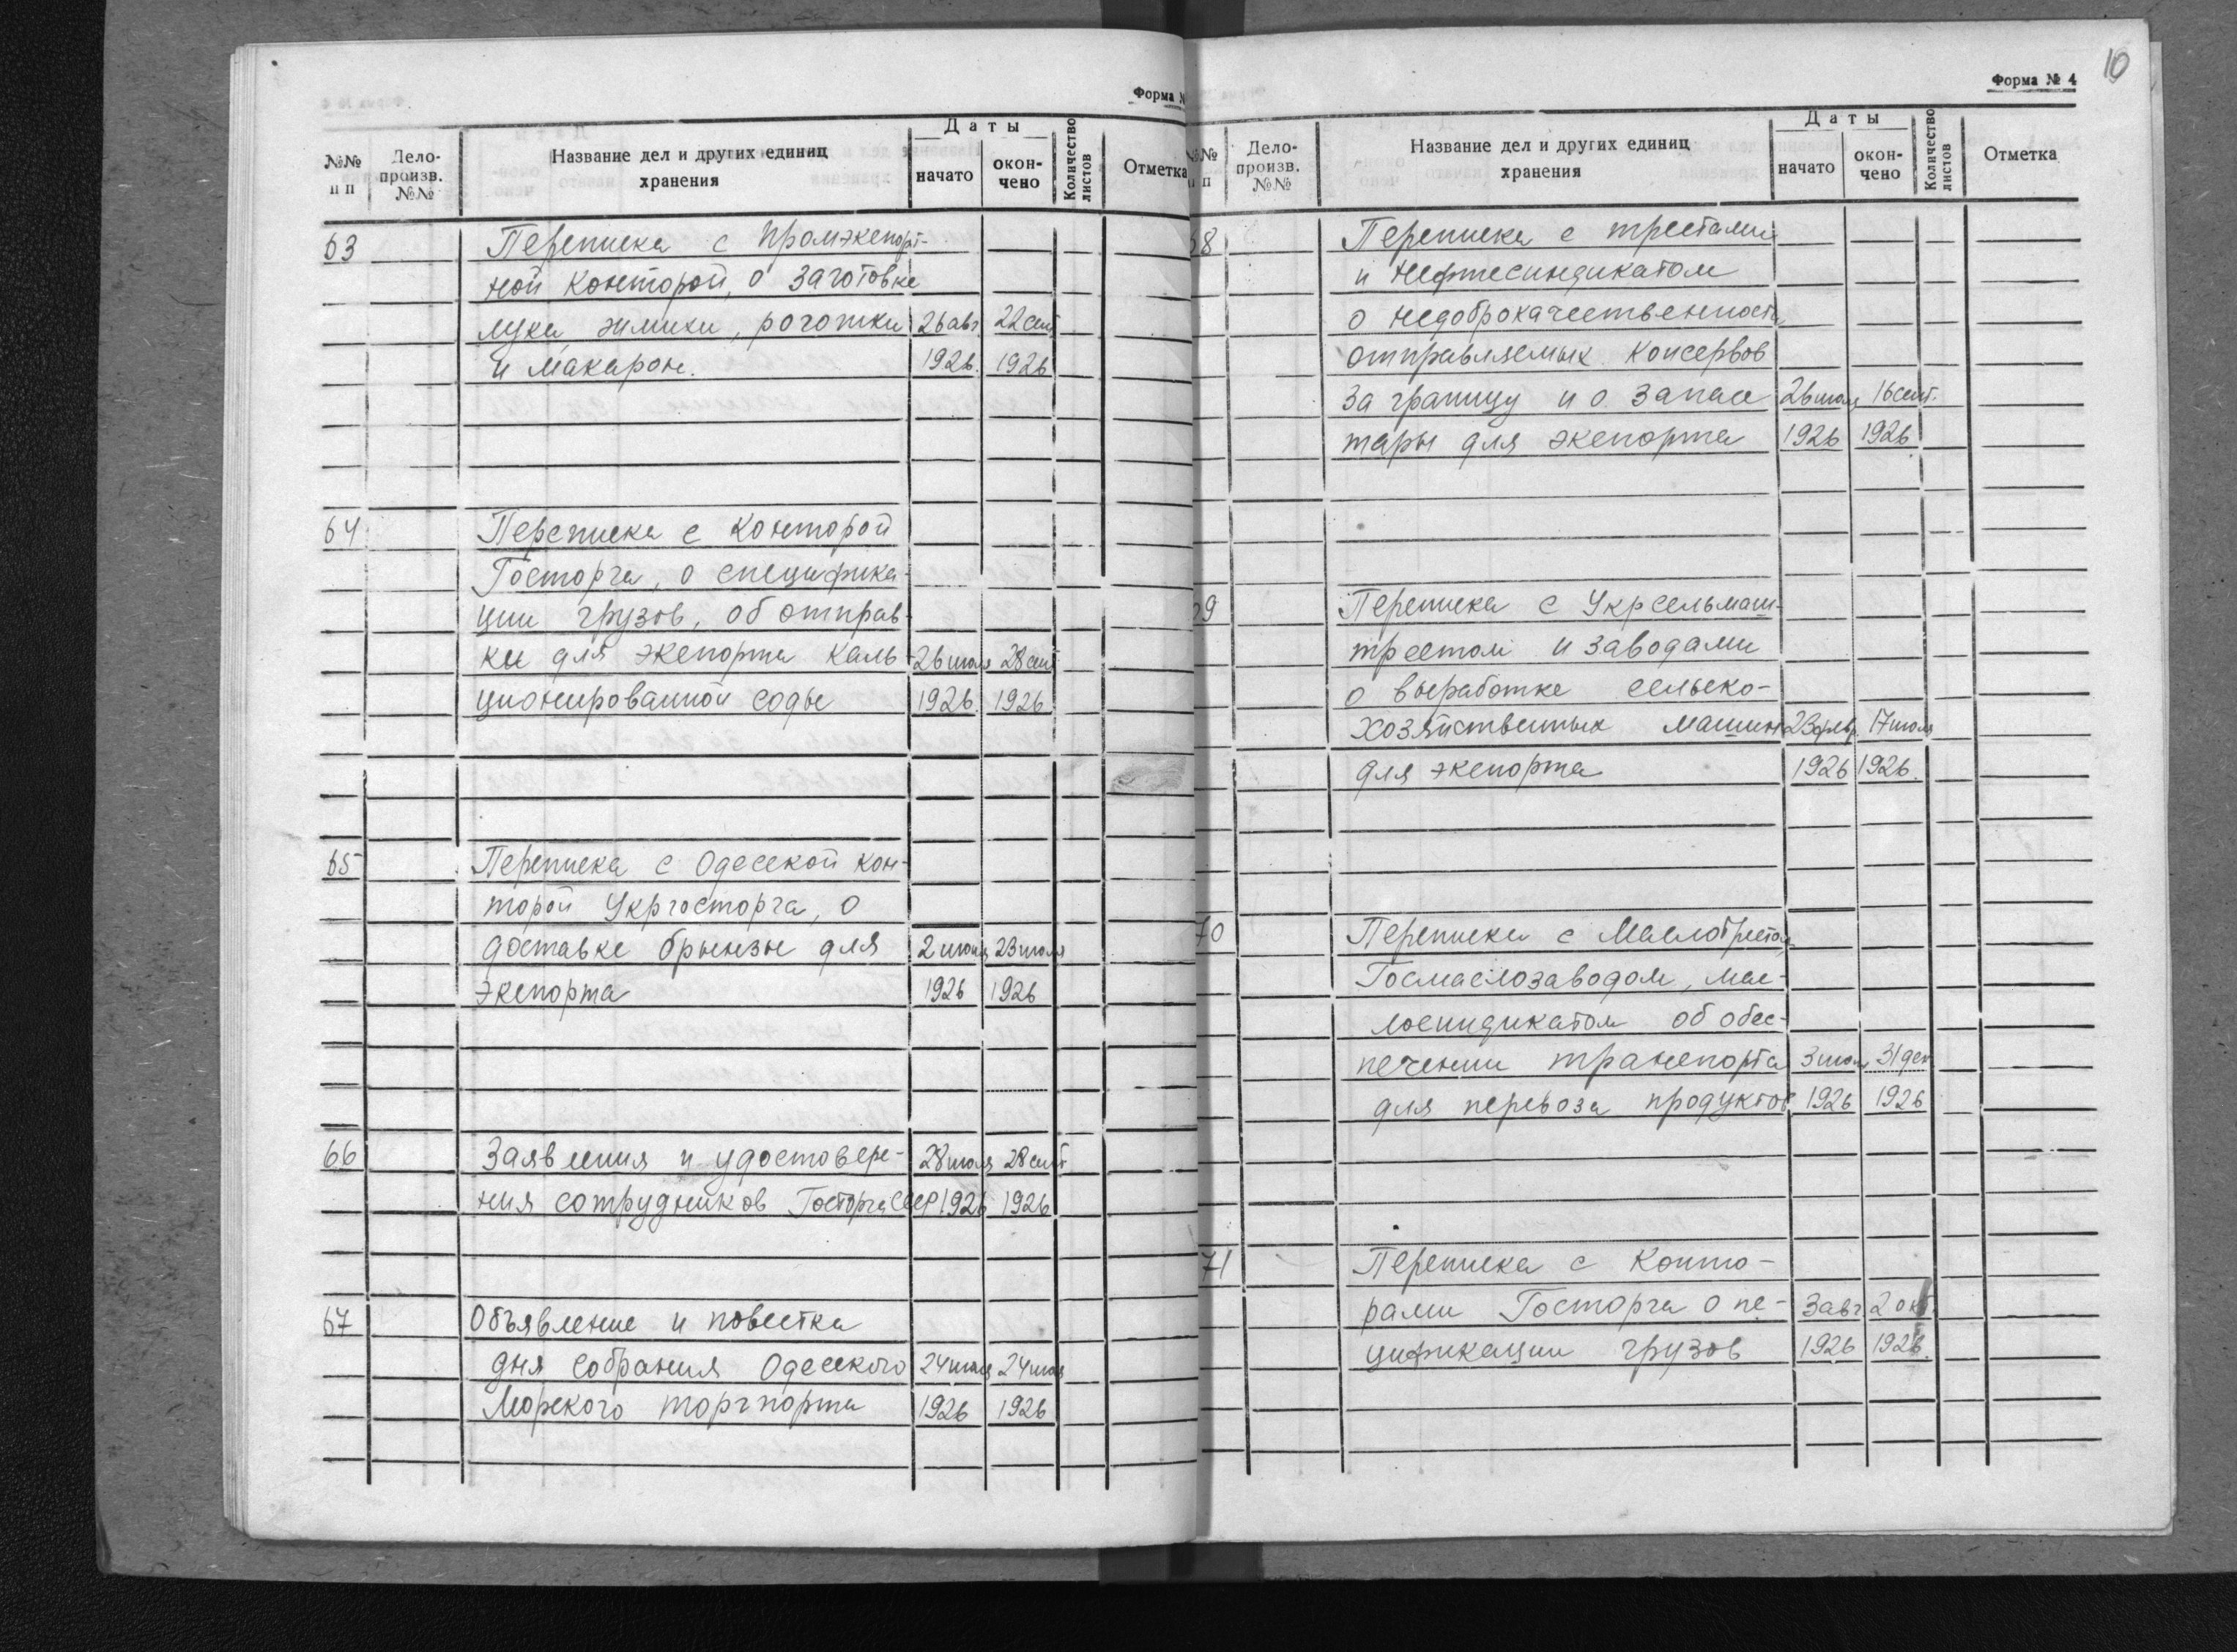 Форма №
№№ п п
Дело-произв. №№
Название дел и других единиц хранения
Даты
начато
окон-чено
Количество листов
Отметка
63
Переписка с Промэкспорт-
ной конторой, о заготовке
лука, жмыхи, рогожки 26 авг 22 сент
и макарон. 1926. 1926
64
Переписка с конторой
Госторга, о специфика-
ции грузов, об отправ-
ки для экспорта каль- 26 июля 28 сент
ционированной соды 1926. 1926
65
Переписка с Одесской кон-
торой Укргосторга, о
доставке брынзы для 2 июня 23 июля
экспорта 1926 1926
66
Заявления и удостовере- 28 июля 28 сент
ния сотрудников Госторга СССР 1926 1926
67
Объявление и повестка
дня собрания Одесского 24 июля 24 июля
Морского торгпорта 1926 1926
10
Форма № 4
№№ п
Дело-произв. №№
Название дел и других единиц хранения
Даты
начато
окон-чено
Количество листов
Отметка
68
Переписка с трестами
и Нефтесиндикатом
о недоброкачественности
отправляемых консервов
за границу и о запасе 26 июля 16 сент.
тары для экспорта 1926 1926
69
Переписка с Укрсельмаш-
трестом и заводами
о выработке сельско-
хозяйственных машин 23 февр. 17 июля
для экспорта 1926 1926.
70
Переписка с Маслотрестом,
Госмаслозаводом, мас-
лосиндикатом об обес-
печении транспорта 31 дек
для перевоза продуктов 1926 1926
71
Переписка с Конто-
рами Госторга о пе- 3 авг. 2 окт.
цификации грузов 1926 1926.